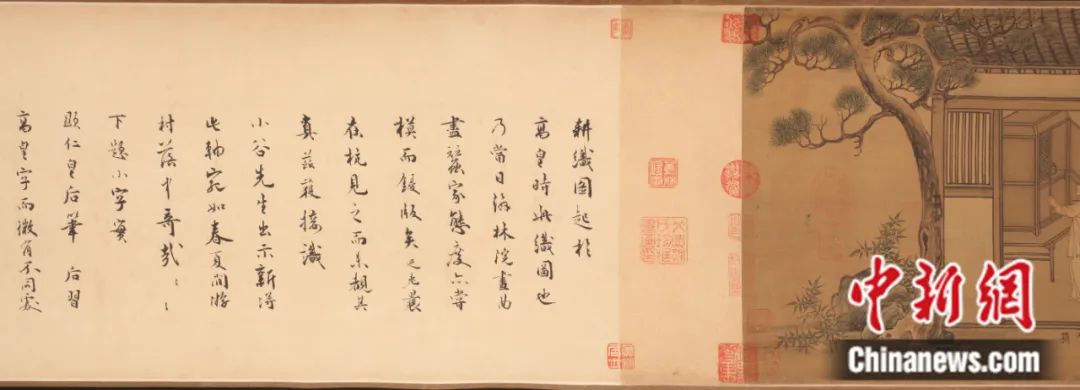 耕織圖起於
高皇時此織圖也
乃當日翰林院畫曲
盡蠶家態度亦嘗
模而鋟版矣之光曩
在杭見之而未覩其
真茲獲接識
小谷先生出示新得
此軸宛如春夏間游
村落中奇哉〻〻
下題小字實
顯仁皇后筆 后習
高皇字而微有不同處
中新網
Chinanews.com